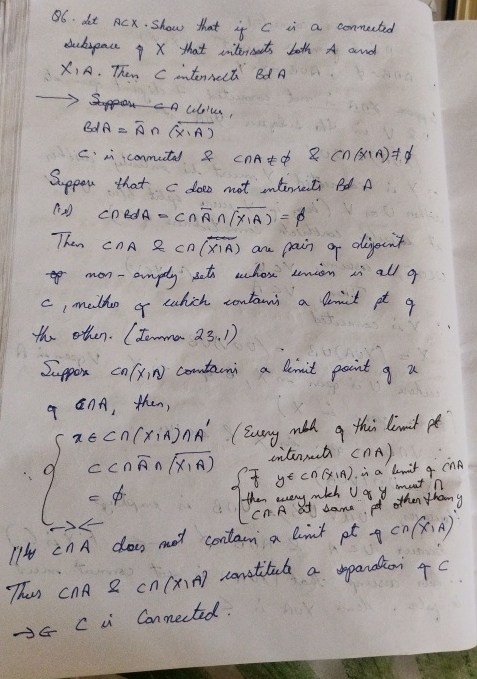 Q6. Let A⊂X. Show that if C is a connected
subspace of X that intersects both A and
X\A. Then C intersects Bd A
→ Suppose C A
Bd A = Ā ∩ (X\A)‾
C is connected & C∩A ≠ ϕ & C∩(X\A) ≠ ϕ
Suppose that C does not intersects Bd A
(i.e) C∩Bd A = C∩Ā∩(X\A)‾ = ϕ
Then C∩A & C∩(X\A) are pair of disjoint
non-empty sets whose union is all of
C, neither of which contains a limit pt of
the other. (Lemma 23.1)
Suppose C∩(X\A) contains a limit point of x
of C∩A, then,
x ∈ C∩(X\A)∩A' (Every nbh of this limit pt
intersects C∩A)
⊂ C∩Ā∩(X\A)‾
= ϕ
If y ∈ C∩(X\A) is a limit of C∩A
then every nbh U of y must ∩
C∩A at some pt other than y
→←
||ly C∩A does not contain a limit pt of C∩(X\A)
Thus C∩A & C∩(X\A) constitute a separation of C
→← C is Connected.